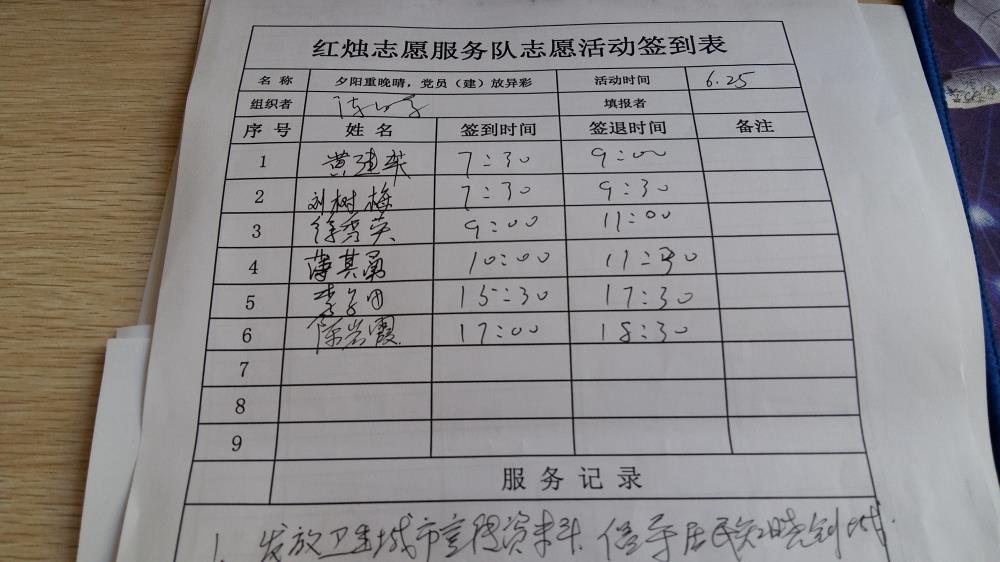 红烛志愿服务队志愿活动签到表
名称 夕阳重晚晴,党员(建)放异彩 活动时间 6.25
组织者 填报者
序号 姓名 签到时间 签退时间 备注
1 黄建英 7:30 9:00
2 刘树梅 7:30 9:30
3 徐秀英 9:00 11:00
4 薄其勇 10:00 11:30
5 15:30 17:30
6 陈岩霞 17:00 18:30
7
8
9
服务记录
1、发放卫生城市宣传资料、倡导居民知晓创城